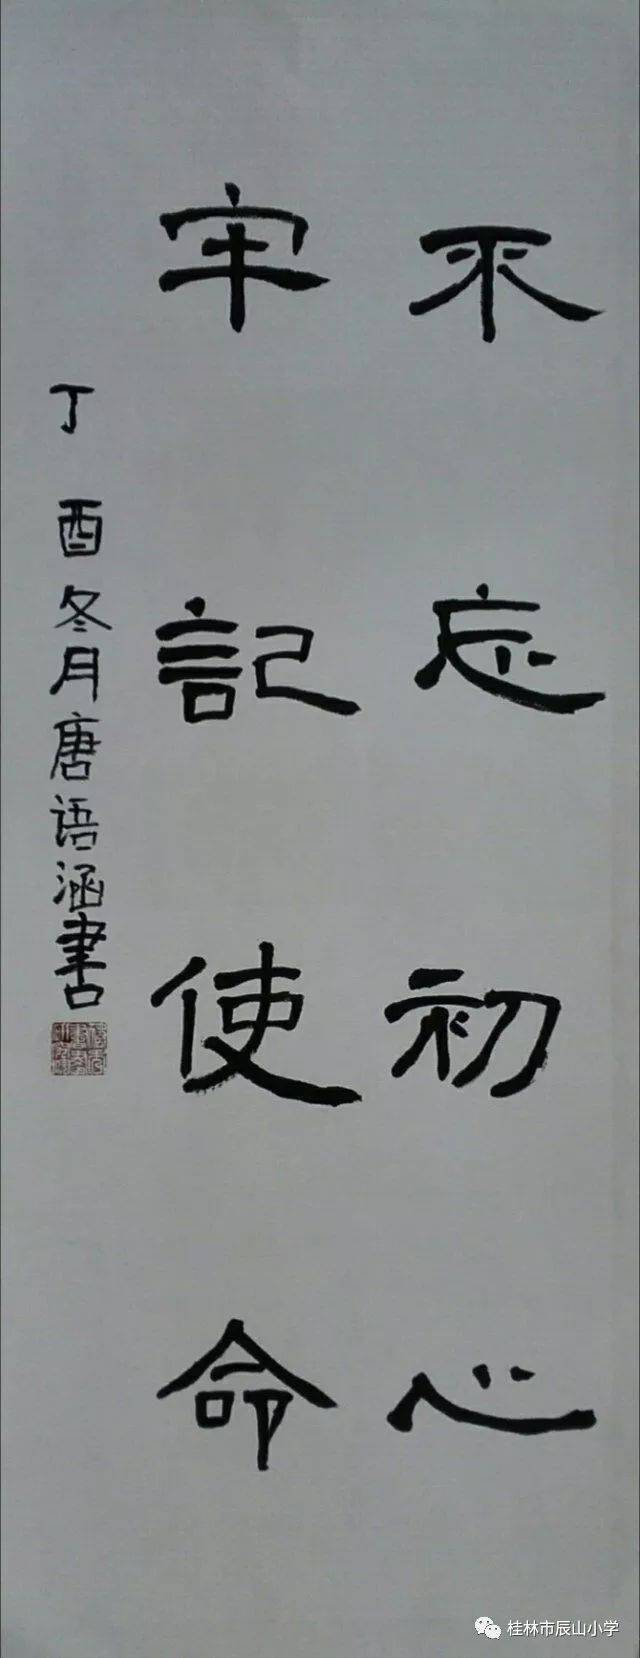 不忘初心
牢記使命
丁酉冬月唐语涵書
桂林市辰山小学